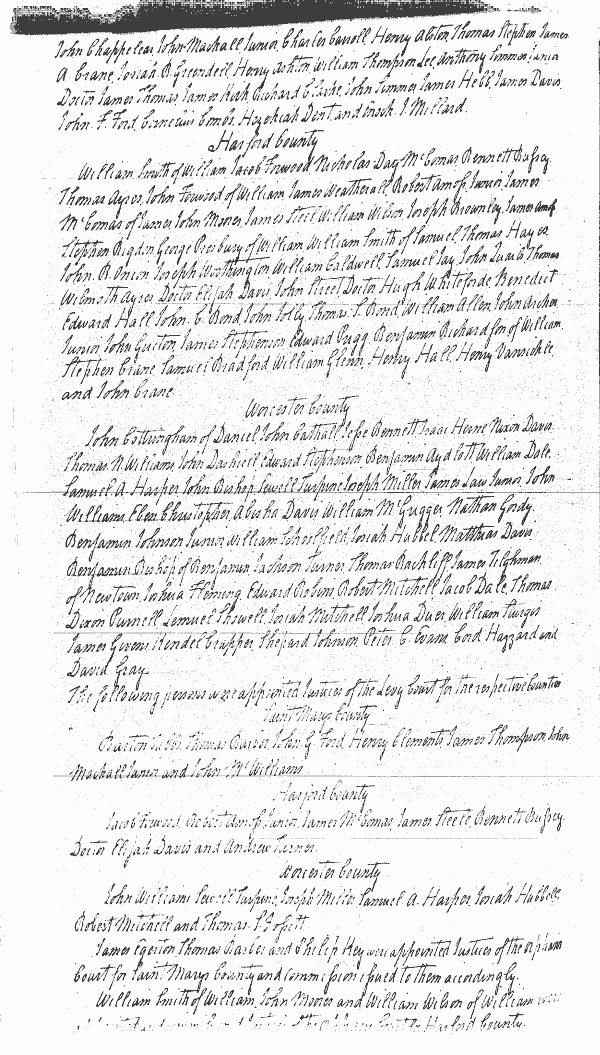 John Chappelear, John Mackall Junior, Charles Carroll, Henry Alston, Thomas Stephen, James
A Crane, Josiah B. Greenfield, Henry Ashton, William Thompson, Lee, Anthony Simmes Junior
Doctor James Thomas, James Keech, Richard Clarke, John Simmes, James Hebb, James Davis
John F. Ford, Cornelius Combs, Hezekiah Dent, and Enoch I Millard.
Harford County
William Smith of William, Jacob Forwood, Nicholas Day McComas, Bennett Bussey
Thomas Ayres, John Forwood of William, James Weatherall, Robert Amoss, Junior, James
McComas of James, John Moores, James Steel, William Wilson, Joseph Brownley, James Amoss
Stephen Rigdon, George Presbury of William, William Smith of Samuel, Thomas Hayes,
John B. Onion, Joseph Worthington, William Caldwell, Samuel Jay, John Lamb, Thomas
Wilmoth Ayres, Doctor Elijah Davis, John Street, Doctor Hugh Whiteforde, Benedict
Edward Hall, John C. Bond, John Jolly, Thomas T. Bond, William Allen, John Archer
Junior, John Guiton, James Stephenson, Edward Pugg, Benjamin Richardson of William,
Stephen Crane, Samuel Bradford, William Glenn, Henry Hall, Henry Vansickle,
and John Crane
Worcester County
John Cottringham of Daniel, John Cathall, Jesse Bennett, Isaac Hearne, Nixon Davis
Thomas N. Williams, John Dashiell, Edward Stephenson, Benjamin Aydlott, William Dale.
Samuel A. Harper, John Bishop, Sewell Turpine, Joseph Miller, James Law Junior, John
Williams, Eben Christopher, Abisha Davis, William McGrigger, Nathan Gordy,
Benjamin Johnson Junior, William Schoolfield, Josiah Hubbel, Matthias Davis
Benjamin Bishop of Benjamin, Jackson Turner, Thomas Rackliff, James Tilghman
of Newtown, Joshua Fleming, Edward Robins, Robert Mitchell, Jacob Dale, Thomas
Dixon Purnell, Lemuel Showell, Josiah Mitchell, Joshua Duer, William Sturgis
James Givens, Kendel Crapper, Shepard Johnson, Peter C. Evans, Cord Hazzard and
David Gray.
The following persons were appointed Justices of the Levy Court for the respective Counties
Saint Marys County
Thomas Barber, John G Ford, Henry Clements, James Thompson, John
Mackall Junior and John McWilliams
Harford County
Jacob Forwood, Robert Amoss Junior, James McComas, James Steele, Bennett Bussey
Doctor Elijah Davis and Andrew Turner.
Worcester County
John Williams, Sewell Turpine, Joseph Miller, Samuel A. Harper, Josiah Hubbell,
Robert Mitchell and Thomas
James Egerton, Thomas Barber and Philip Key were appointed Justices of the orphans
Court for Saint Marys County and commission issued to them accordingly.
William Smith of William, John Moores and William Wilson of William were
Harford County.